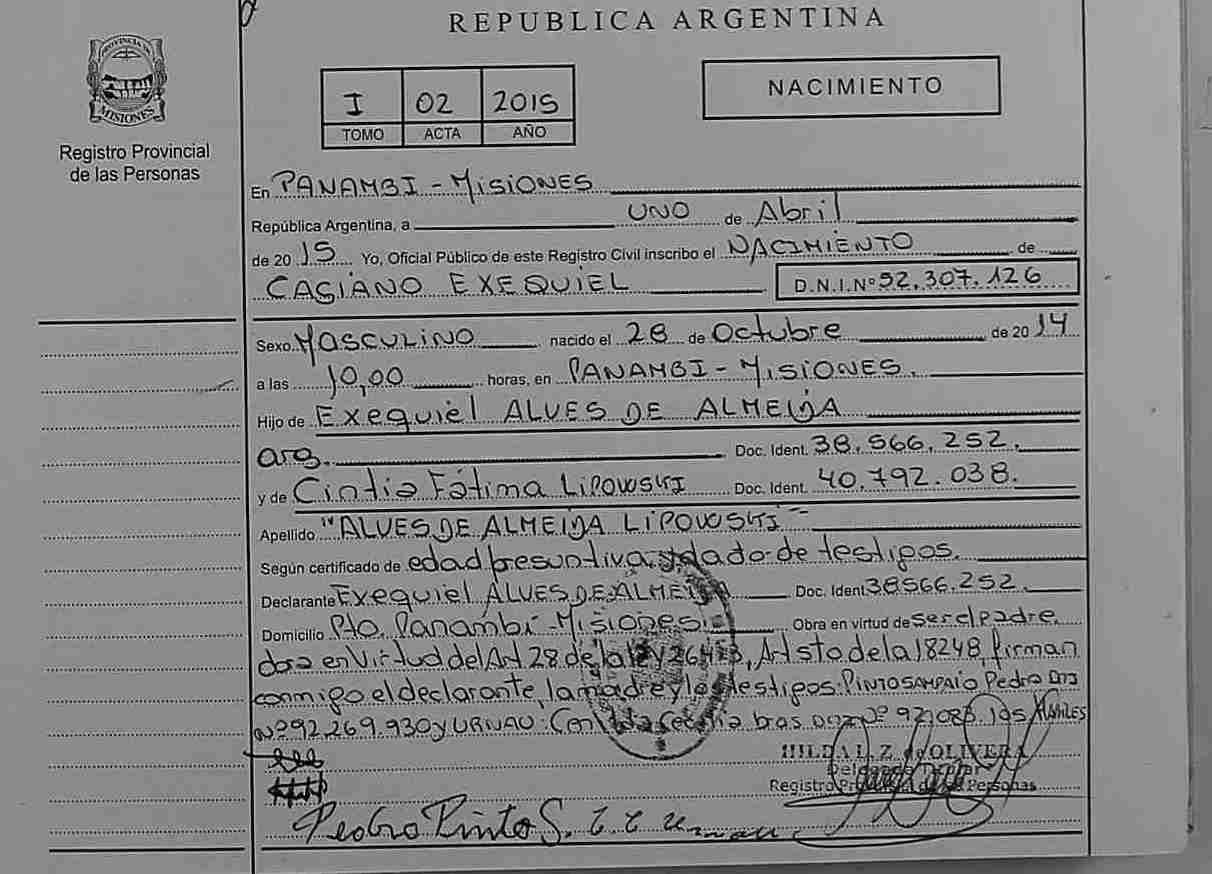 REPUBLICA ARGENTINA
PROVINCIA DE
MISIONES
Registro Provincial
de las Personas
I 02 2015
TOMO ACTA AÑO
NACIMIENTO
En PANAMBI - MISIONES
República Argentina, a UNO de Abril
de 20 15 Yo, Oficial Público de este Registro Civil inscribo el NACIMIENTO de
CASIANO EXEQUIEL D.N.I.Nº 52.307.126
Sexo MASCULINO nacido el 28 de Octubre de 20 14
a las 10,00 horas, en PANAMBI - MISIONES.
Hijo de Exequiel ALVES DE ALMEIDA
arg. Doc. Ident. 38.566.252.
y de Cintia Fátima LIPOWSKI Doc. Ident. 40.792.038.
Apellido "ALVES DE ALMEIDA LIPOWSKI"
Según certificado de edad presuntiva y dado de testigos.
Declarante Exequiel ALVES DE ALMEIDA Doc. Ident 38566.252.
Domicilio Pto. Panambí - Misiones Obra en virtud de ser el padre.
en Virtud del Art 28 de la ley 26413, Art 5to de la 18248, firman
conmigo el declarante, la madre y los testigos: PINTO SAMPAIO Pedro DNI
Nº 92.269.930 y URNAU: bras. DNI Nº
HILDA L. Z. de OLIVERA
Registro Provincial de las Personas
Pedro Pinto S.